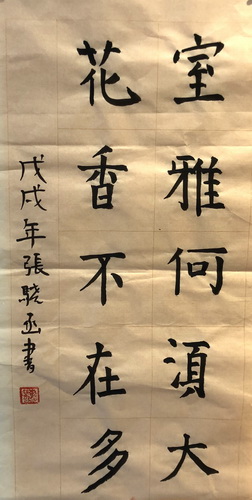 室雅何須大
花香不在多
戊戌年張驍丞書